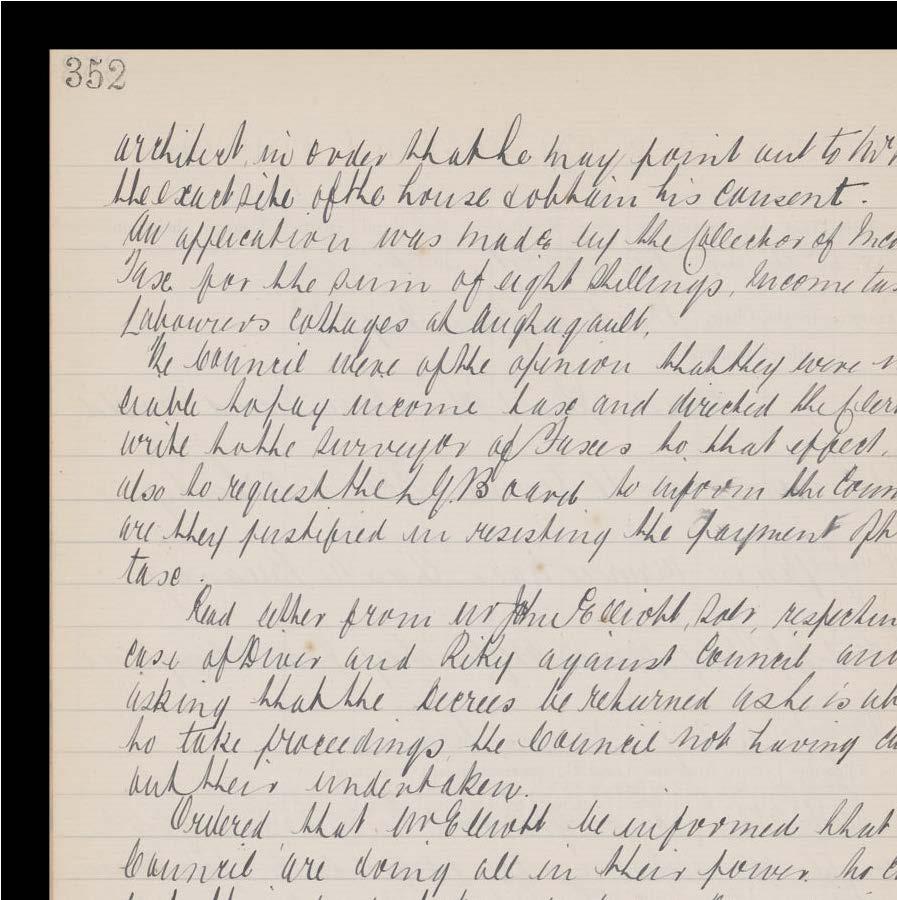 352
architect, in order that he may point out to Mr
the exact site of the house & obtain his consent.
An application was made by the Collector of Inco
Tax for the sum of eight shillings, Income tax
Labourers cottages at Aughagault.
The Council were of the opinion that they were
liable to pay income tax and directed the Cler
write to the Surveyor of Taxes to that effect,
also to request the L G Board to inform the Coun
are they justified in resisting the payment of th
tax.
Read letter from Mr John Elliott, Solr, respectin
case of Diver and Kirky against Council and
asking that the Decrees be returned as he is ab
to take proceedings, the Council not having ca
out their undertaken.
Ordered that Mr Elliott be informed that
Council are doing all in their power to c